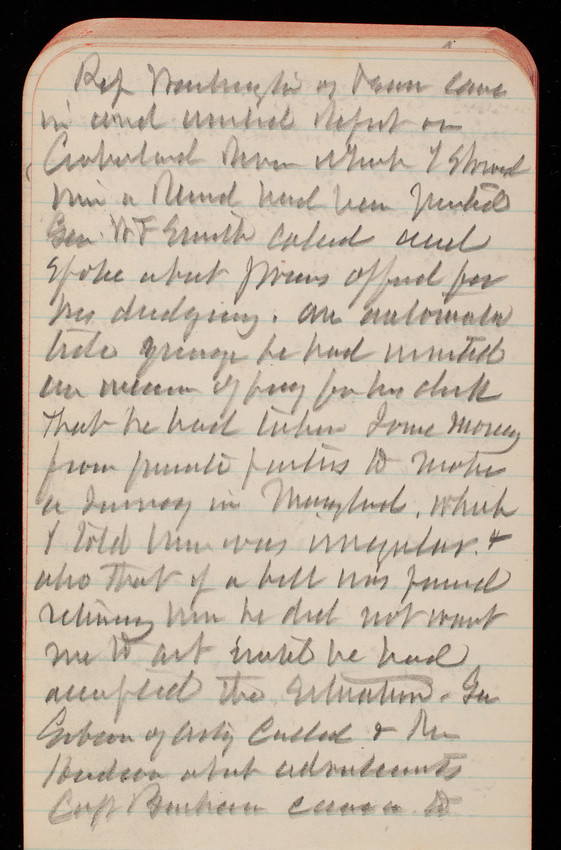 Rep Washington of Tenn came
in and wanted report on
Cumberland River which I showed
him a had been printed
Gen W F Smith called and
spoke about prices offered for
his dredging. an automatic
tide guage he had wanted
an increase of pay for his clerk
that he had taken some money
from private parties to make
a survey in Maryland, which
I told him was irregular &
also that if a bill was passed
retiring him he did not want
me to act until he had
accepted the situation. Gen
Gibson of Arty called & Mr
Hudson about advertisements
Capt Burnham came in to